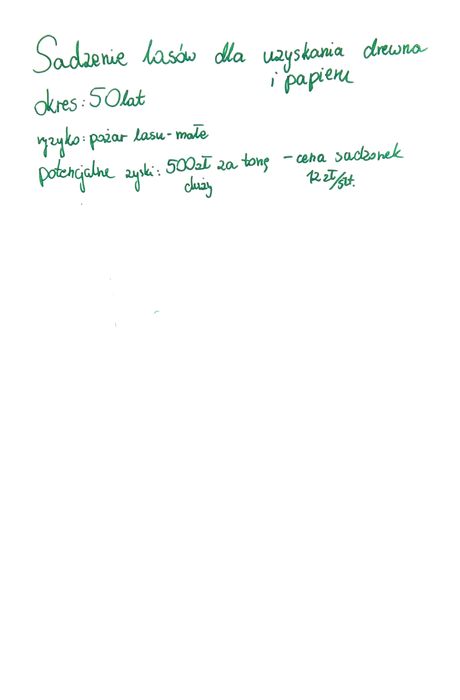 Sadzenie lasów dla uzyskania drewna
i papieru
okres: 50 lat
ryzyko: pożar lasu - małe
potencjalne zyski: 500 zł za tonę - cena sadzonek
duży 12 zł/szt.